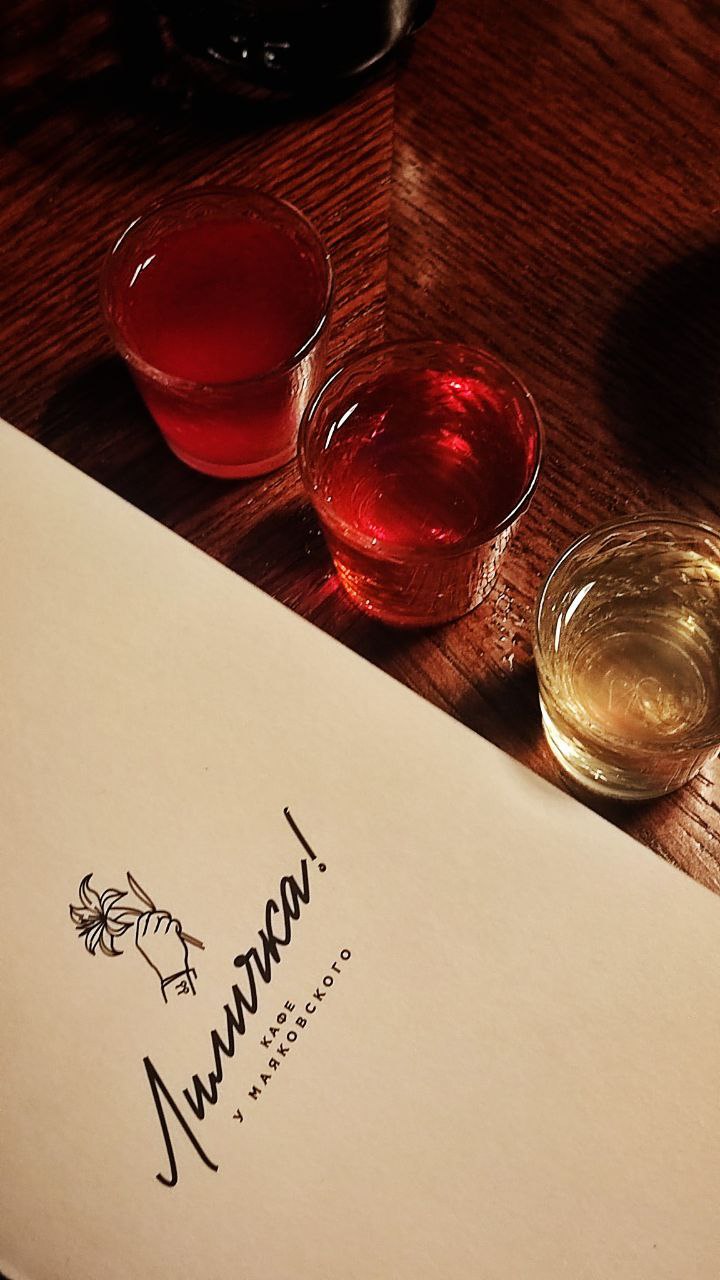 Лиличка!
КАФЕ
У МАЯКОВСКОГО